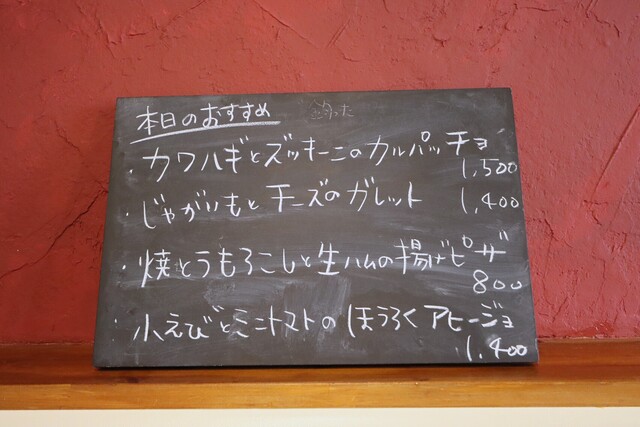 本日のおすすめ
・カワハギとズッキーニのカルパッチョ
1,500
・じゃがいもとチーズのガレット 1,400
・焼とうもろこしと生ハムの揚げピザ
800
・小えびとミニトマトのほうろくアヒージョ
1,400